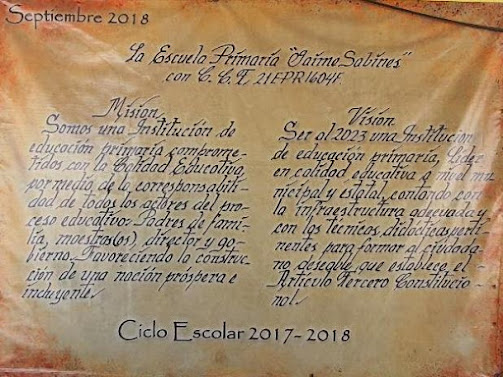 Septiembre 2018
La Escuela Primaria "Jaime Sabines"
con C. C. T. 21EPR1604F.
Misión
Somos una Institución de
educación primaria comprome-
tidos con la Calidad Educativa,
por medio de la corresponsabili-
dad de todos los actores del pro-
ceso educativo: Padres de fami-
lia, maestras(os), director y go-
bierno. Favoreciendo la construc-
ción de una nación próspera e
incluyente.
Visión
Ser al 2023 una Institución
de educación primaria, líder
en calidad educativa a nivel mu-
nicipal y estatal, contando con
la infraestructura adecuada y
con las técnicas didácticas perti-
nentes para formar al ciudada-
no deseable que establece el
Artículo Tercero Constitucio-
nal.
Ciclo Escolar 2017-2018